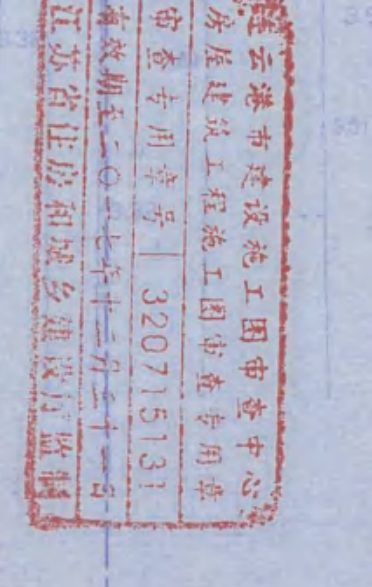 连云港市建设施工图审查中心
房屋建筑工程施工图审查专用章
审查专用章号 320715131
有效期至二〇一七年十二月三十一日
江苏省住房和城乡建设厅监制